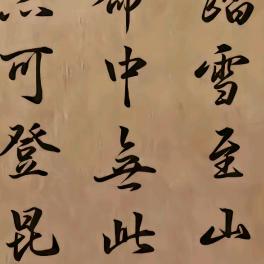 踏雪至山
命中無此
可登昆